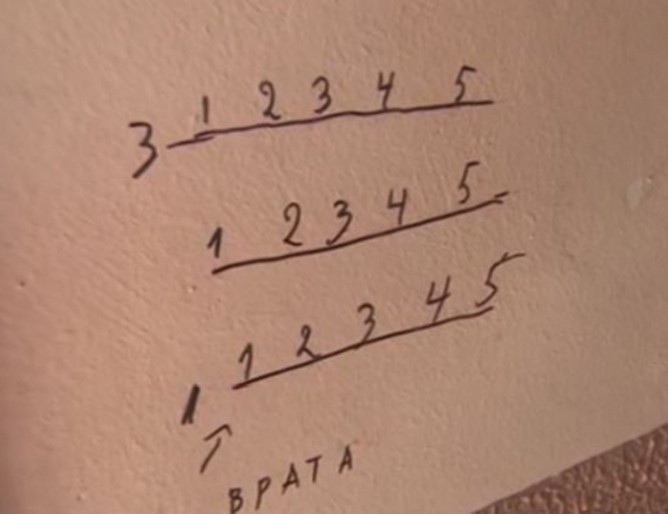 3 - 1 2 3 4 5
1 2 3 4 5
1 1 2 3 4 5
↑
ВРАТА